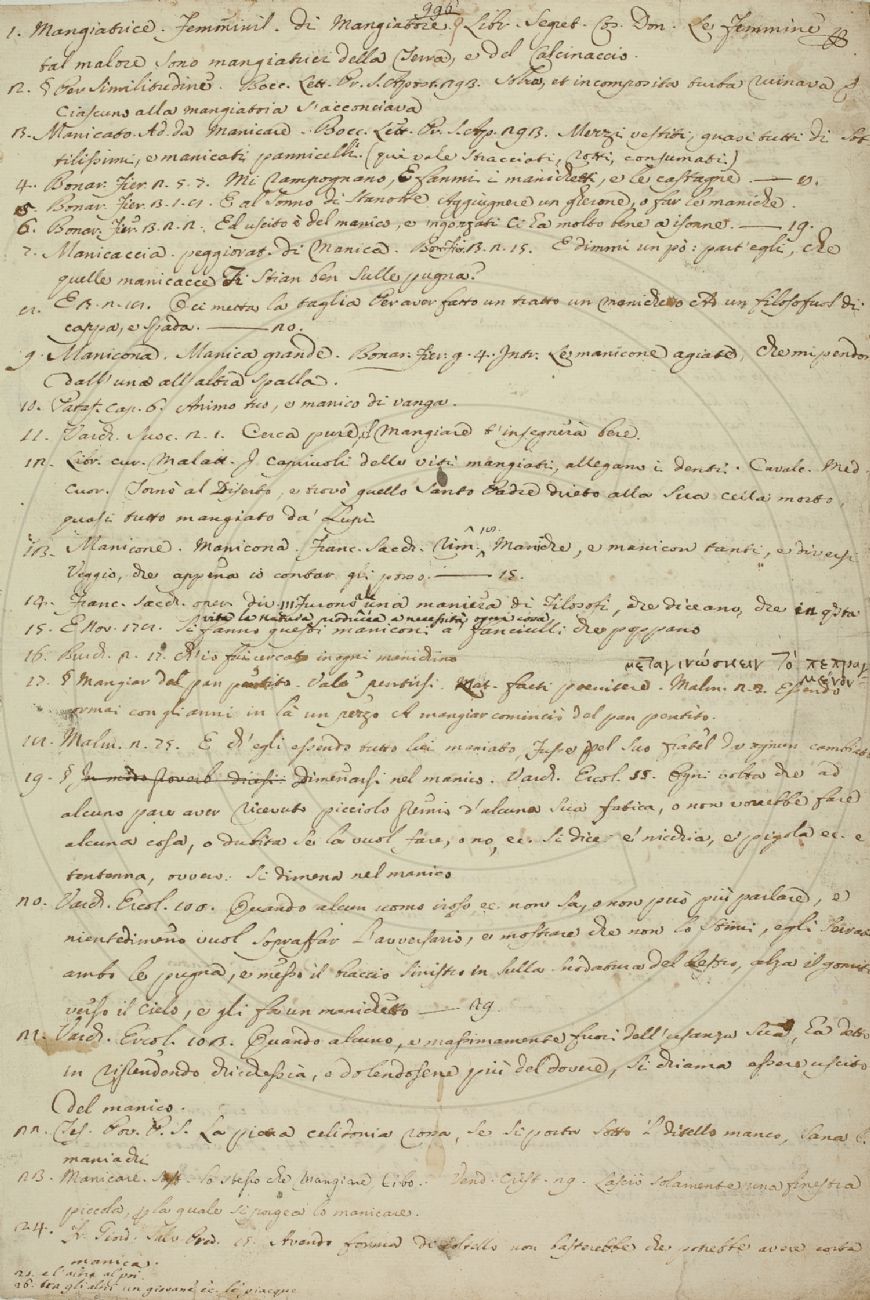 996
1. Mangiatrice. Femminil. di Mangiatore. Libr. Segret. Co. Don. Le Femmine
tal malore sono mangiatrici della Terra, e del Calcinaccio.
2. § Per Similitudine. Bocc. Lett. Pr. S. Apost. 293. et incomposita turba ruinava
Ciascuno alla mangiatoia s'acconciava
3. Manicato. Ad. da Manicare. Bocc. Lett. Pr. S. Ap. 293. Mezzi vestiti, quasi tutti di sot
tilissimi, e manicati pannicelli. (qui vale stracciati, rotti, consumati.)
4. Bonar. Fier. 2. 5. 7. Mi rampognano, E fanmi i manichetti, e le castagne.
5. Bonar. Fier. 3. 1. 9. E al Tomo di Stanotte Aggiugnere un gherone, o far le maniche.
6. Bonar. Fier. 3. 2. 2. Ed uscito è del manico, e ingozzati Ci ha molto bene a isonne. 19.
7. Manicaccia. peggiorat. di Manica. 3. 2. 15. E dimmi un pò: part'egli, che
quelle manicacce Ti stian ben sulle pugna?
8. E 3. 2. 18. O ci metta la taglia Per aver fatto un tratto un manichetto Ad un filosofuol di
cappa, e spada. 20.
9. Manicona. Manica grande. Bonar. Fier. g. 4. Intr. Le manicone agiate, che mi pendon
dall'una all'altra spalla.
10. Pataf. cap. 6. Animo tuo, e manico di vanga.
11. Varch. Suoc. 2. 1. Cerca pure, Mangiare t'insegnerà bere.
12. Libr. cur. Malatt. I capiuoli delle viti mangiati, allegano i denti. Cavalc. Med.
cuor. Tornò al Diserto, e trovò quello Santo Padre drieto alla sua cella morto,
quasi tutto mangiato da' Lupi.
13. Manicone. Manicona. Franc. Sacch. Rim. 18. Maniche, e manicon tanti, e diversi
Veggio, che appena io contar gli posso. 15.
14. Franc. Sacch. oper. div. 111 Furono già una maniera di Filosofi, che diceano, che in q'sta
vita la natura produceva a necessità ogni cosa
15. E Nov. 178. Si fanno questi maniconi a' fanciulli che poppano
16. Burch. 2. 17. ch'io fui cercato in ogni manichino
μεταγινώσκειν Τὸ πεπραγ
μένον
17. § Mangiar del pan pentito. Vale pentirsi. Lat. facti poenitere. Malm. 2. 7. Essendo
ormai con gli anni in là un pezzo A mangiar cominciò del pan pentito.
18. Malm. 2. 75. E ch'egli essendo tutto lui maniato, Fusse pel suo fratel da ognun cambiato
19. § In modo Proverb. dicesi. Dimenarsi nel manico. Varch. Ercol. 55. Ogni volta che ad
alcuno pare aver ricevuto picciolo premio d'alcuna sua fatica, o non vorrebbe fare
alcuna cosa, o dubita se la vuol fare, o no, ec. si dice: e' nicchia, e' pigola ec. e
tentenna, ovvero. si dimena nel manico
20. Varch. Ercol. 100. Quando alcun uomo iroso ec. non sa, o non può più parlare, e
nientedimeno vuol sopraffar l'avversario, e mostrare che non lo stimi, egli serrate
ambo le pugna, e messo il braccio sinistro in sulla nodatura del destro, alza il gomito
verso il Cielo, e gli fa un manichetto 29.
21. Varch. Ercol. 103. Quando alcuno, e massimamente fuori dell'usanza sua, ha detto
in rispondendo checchessia, e dolendosene più del dovere, si chiama essere uscito
del manico.
22. Tes. Pov. P. S. La pietra celidonia rossa, se si porta sotto 'l ditello manco, sana
maniachi
23. Manicare. Sust. lo stesso che Mangiare Cibo. Vend. Crist. 29. Lasciò solamente una finestra
piccola, p la quale si porgea lo manicare.
24. Fr. Giord. Salv. Pred. 8. Avendo forma di coltello non basterebbe che potrebbe avere corta
manica.
26. tra gli altri un giovane ec. le piacque